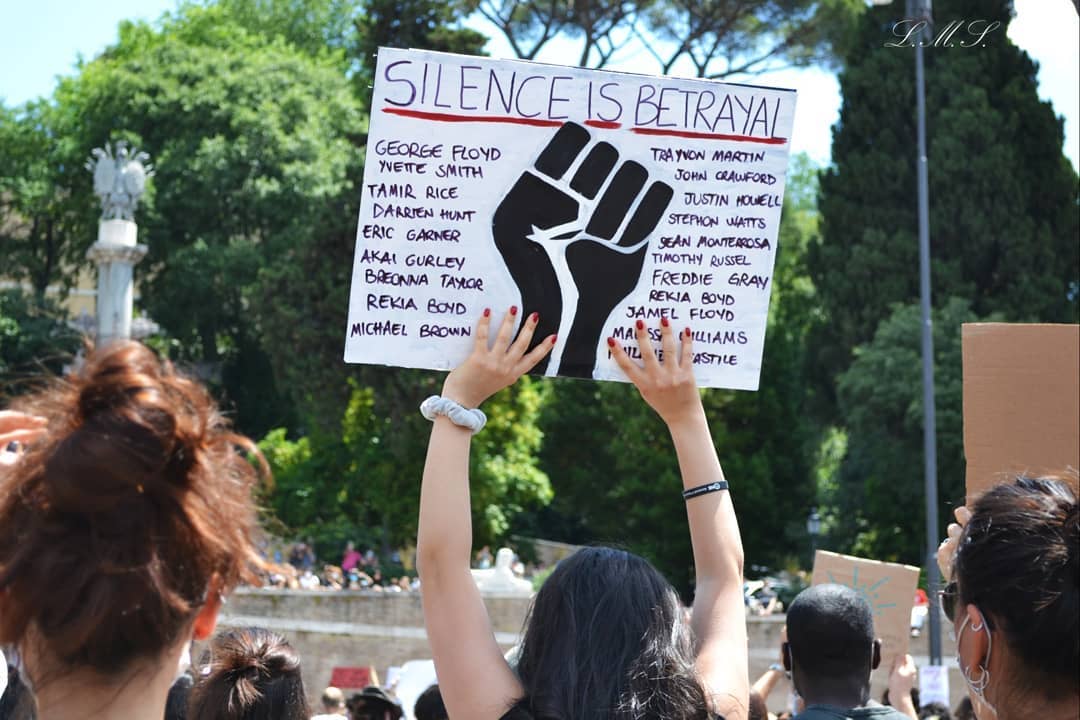 L.M.S.
SILENCE IS BETRAYAL
GEORGE FLOYD
YVETTE SMITH
TAMIR RICE
DARRIEN HUNT
ERIC GARNER
AKAI GURLEY
BREONNA TAYLOR
REKIA BOYD
MICHAEL BROWN
TRAYVON MARTIN
JOHN CRAWFORD
JUSTIN HOWELL
STEPHON WATTS
SEAN MONTERROSA
TIMOTHY RUSSEL
FREDDIE GRAY
REKIA BOYD
JAMEL FLOYD